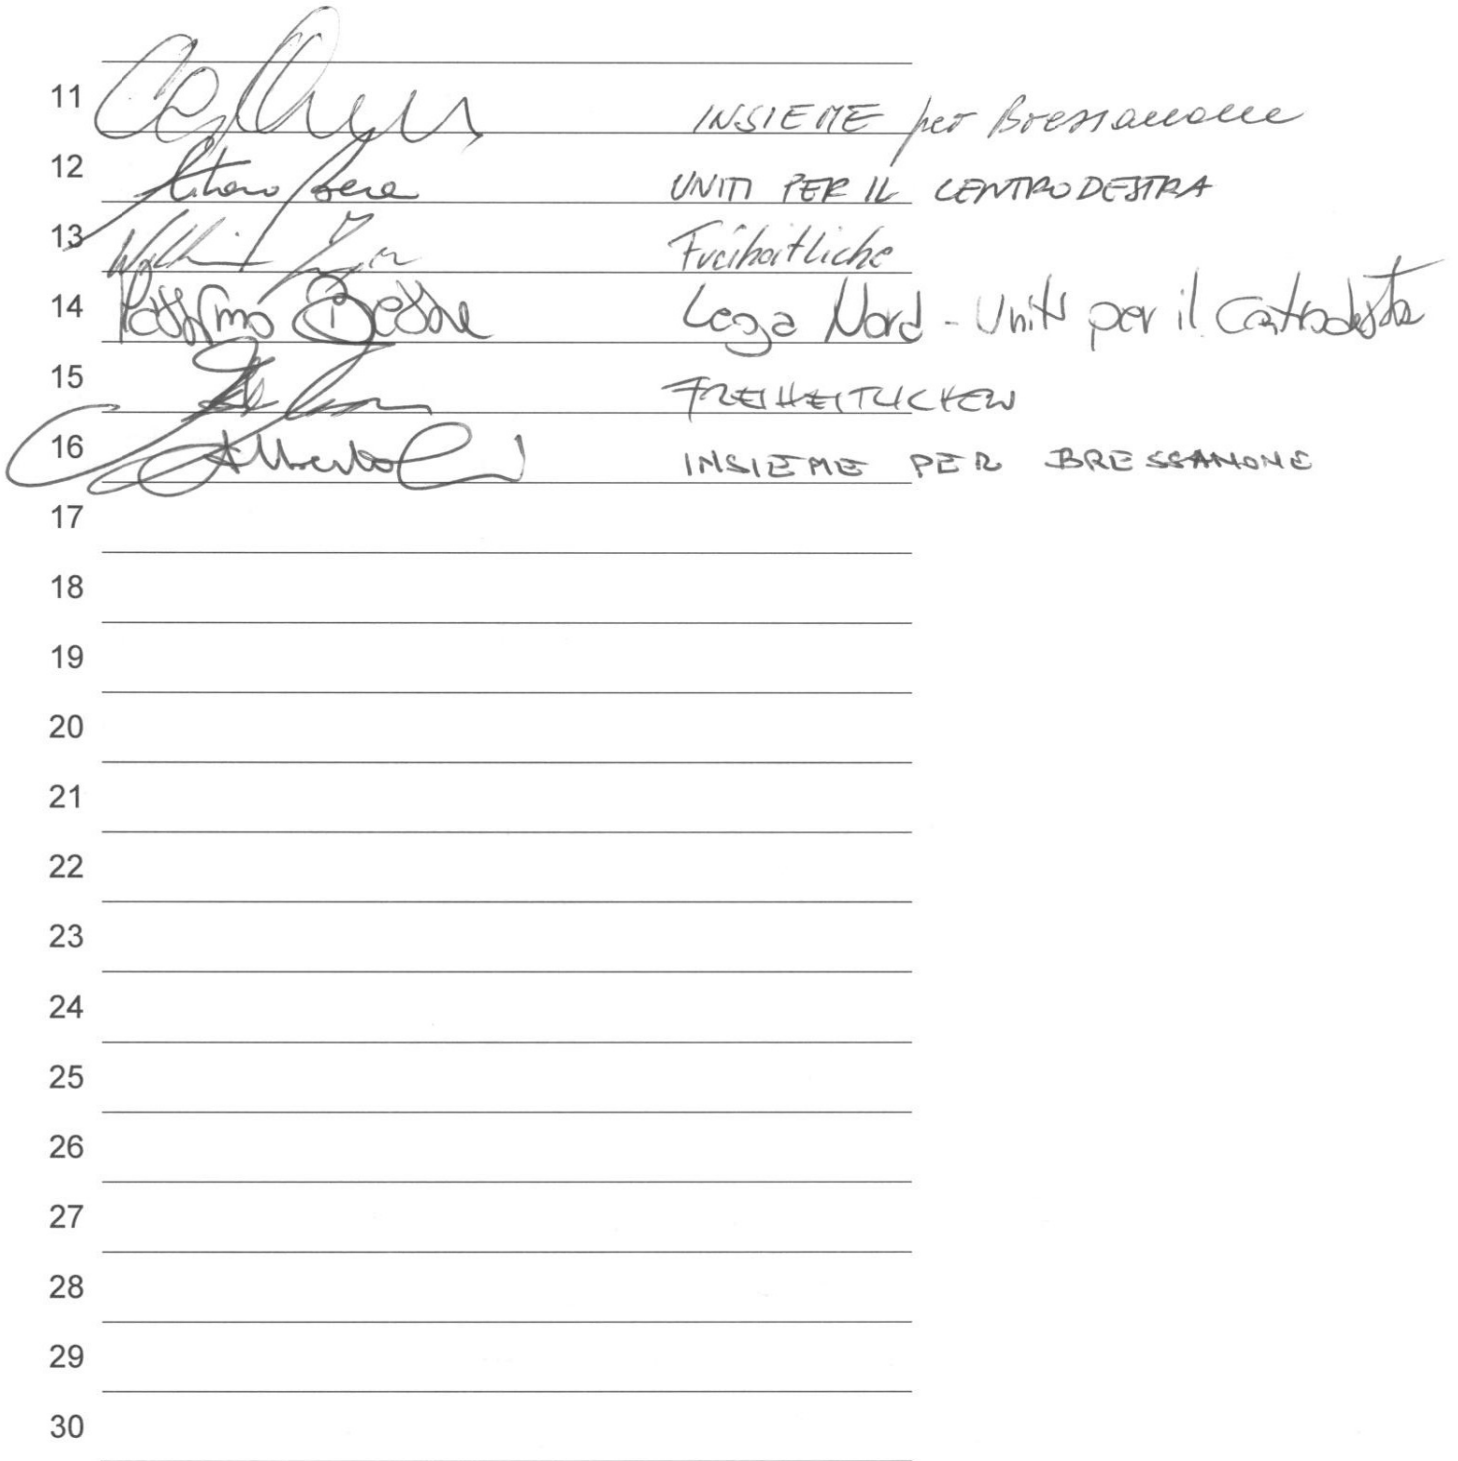 11 INSIEME per Bressanone
12 UNITI PER IL CENTRODESTRA
13 Freiheitliche
14 Massimo Bessone Lega Nord - Uniti per il Centrodestra
15 FREIHEITLICHEN
16 Alberto INSIEME PER BRESSANONE
17
18
19
20
21
22
23
24
25
26
27
28
29
30